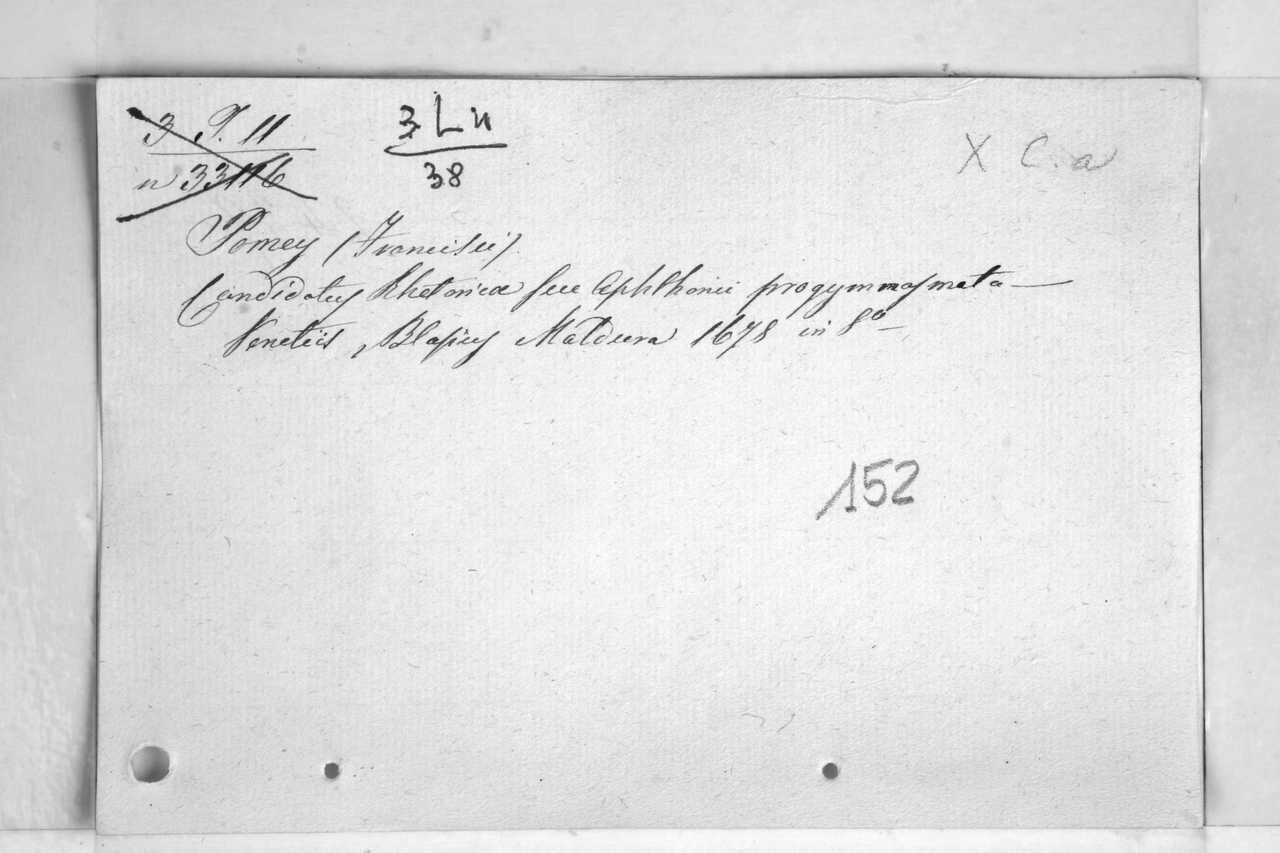 3 P. 11
n 33116
3 L 11
38
X C. a
Pomey (Francisci)
Candidatus Rhetoricæ seu Aphthonii progymnasmata —
Venetiis, Blasius Maldura 1678 in 8º —
152